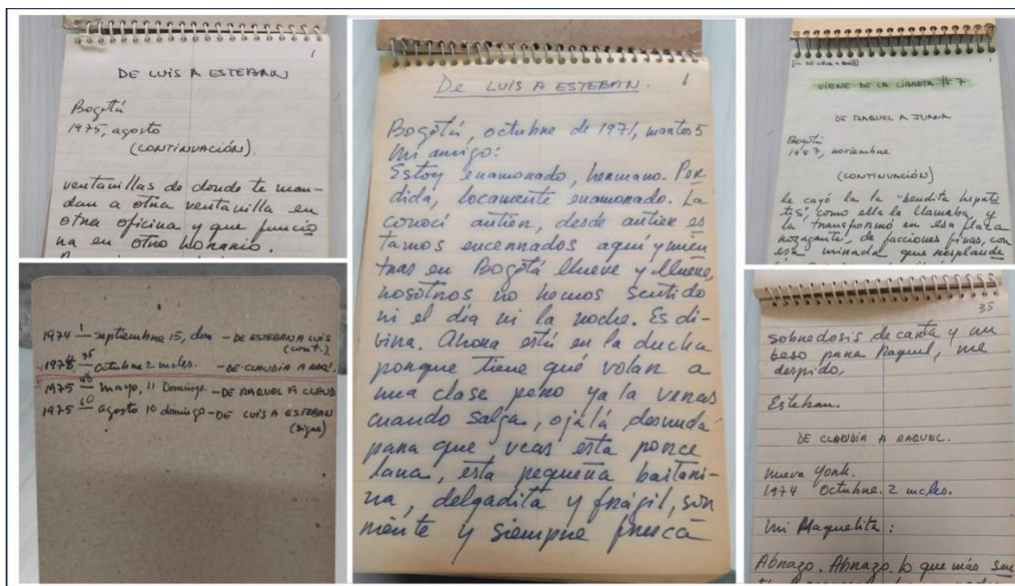 1
DE LUIS A ESTEBAN
Bogotá
1975, agosto
(CONTINUACIÓN).
ventanillas de donde te man-
dan a otra ventanilla en
otra oficina y que funcio
na en otro horario.
1974 1 septiembre 15, dom - DE ESTEBAN A LUIS
(cont.)
1974 35 octubre 2 mcles. - DE CLAUDIA A RAQ.
1975 48 mayo, 11 Domingo - DE RAQUEL A CLAUD
1975 60 agosto 10 domingo - DE LUIS A ESTEBAN
(sigue)
1
De LUIS A ESTEBAN.
Bogotá, octubre de 1971, martes 5
Mi amigo:
Estoy enamorado, hermano. Per
dida, locamente enamorado. La
conocí antier, desde antier es
tamos encerrados aquí y mien
tras en Bogotá llueve y llueve,
nosotros no hemos sentido
ni el día ni la noche. Es di-
vina. Ahora está en la ducha
porque tiene que volar a
una clase pero ya la verás
cuando salga, ojalá desnuda
para que veas esta porce
lana, esta pequeña bailari-
na, delgadita y frágil, son
riente y siempre fresca
1
VIENE DE LA LIBRETA #7
DE RAQUEL A JUANA
Bogotá
1987, noviembre
(CONTINUACIÓN)
le cayó la la "bendita hepati
tis", como ella la llamaba, y
la transformó en esa flaca
arrogante, de facciones finas, con
esa mirada que resplande
35
sobredosis de carta y un
beso para Raquel, me
despido,
Esteban.
DE CLAUDIA A RAQUEL.
Nueva York.
1974 Octubre. 2 mcles.
Mi Raquelita:
Abrazo. Abrazo. Lo que más sen